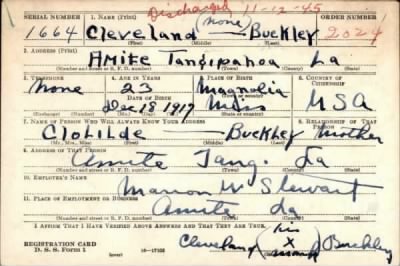 Discharged 11-12-45
SERIAL NUMBER 1. NAME (Print) ORDER NUMBER
1664 Cleveland (none) Buckley 2024
(First) (Middle) (Last)
2. ADDRESS (Print)
Amite Tangipahoa La
(Number and street or R. F. D. number) (Town) (County) (State)
3. TELEPHONE 4. AGE IN YEARS 5. PLACE OF BIRTH 6. COUNTRY OF CITIZENSHIP
None 23 Magnolia
DATE OF BIRTH
Dec 18 1917 Miss USA
7. NAME OF PERSON WHO WILL ALWAYS KNOW YOUR ADDRESS 8. RELATIONSHIP OF THAT PERSON
Clotilde Buckley Mother
(Mr., Mrs., Miss) (First) (Middle) (Last)
9. ADDRESS OF THAT PERSON
Amite Tang. La
(Number and street or R. F. D. number) (Town) (County) (State)
10. EMPLOYER'S NAME
Marion W Stewart
11. PLACE OF EMPLOYMENT OR BUSINESS
Amite La
(Number and street or R. F. D. number) (Town) (County) (State)
I AFFIRM THAT I HAVE VERIFIED ABOVE ANSWERS AND THAT THEY ARE TRUE.
his
REGISTRATION CARD Cleveland X Buckley
D. S. S. Form 1 (over) mark